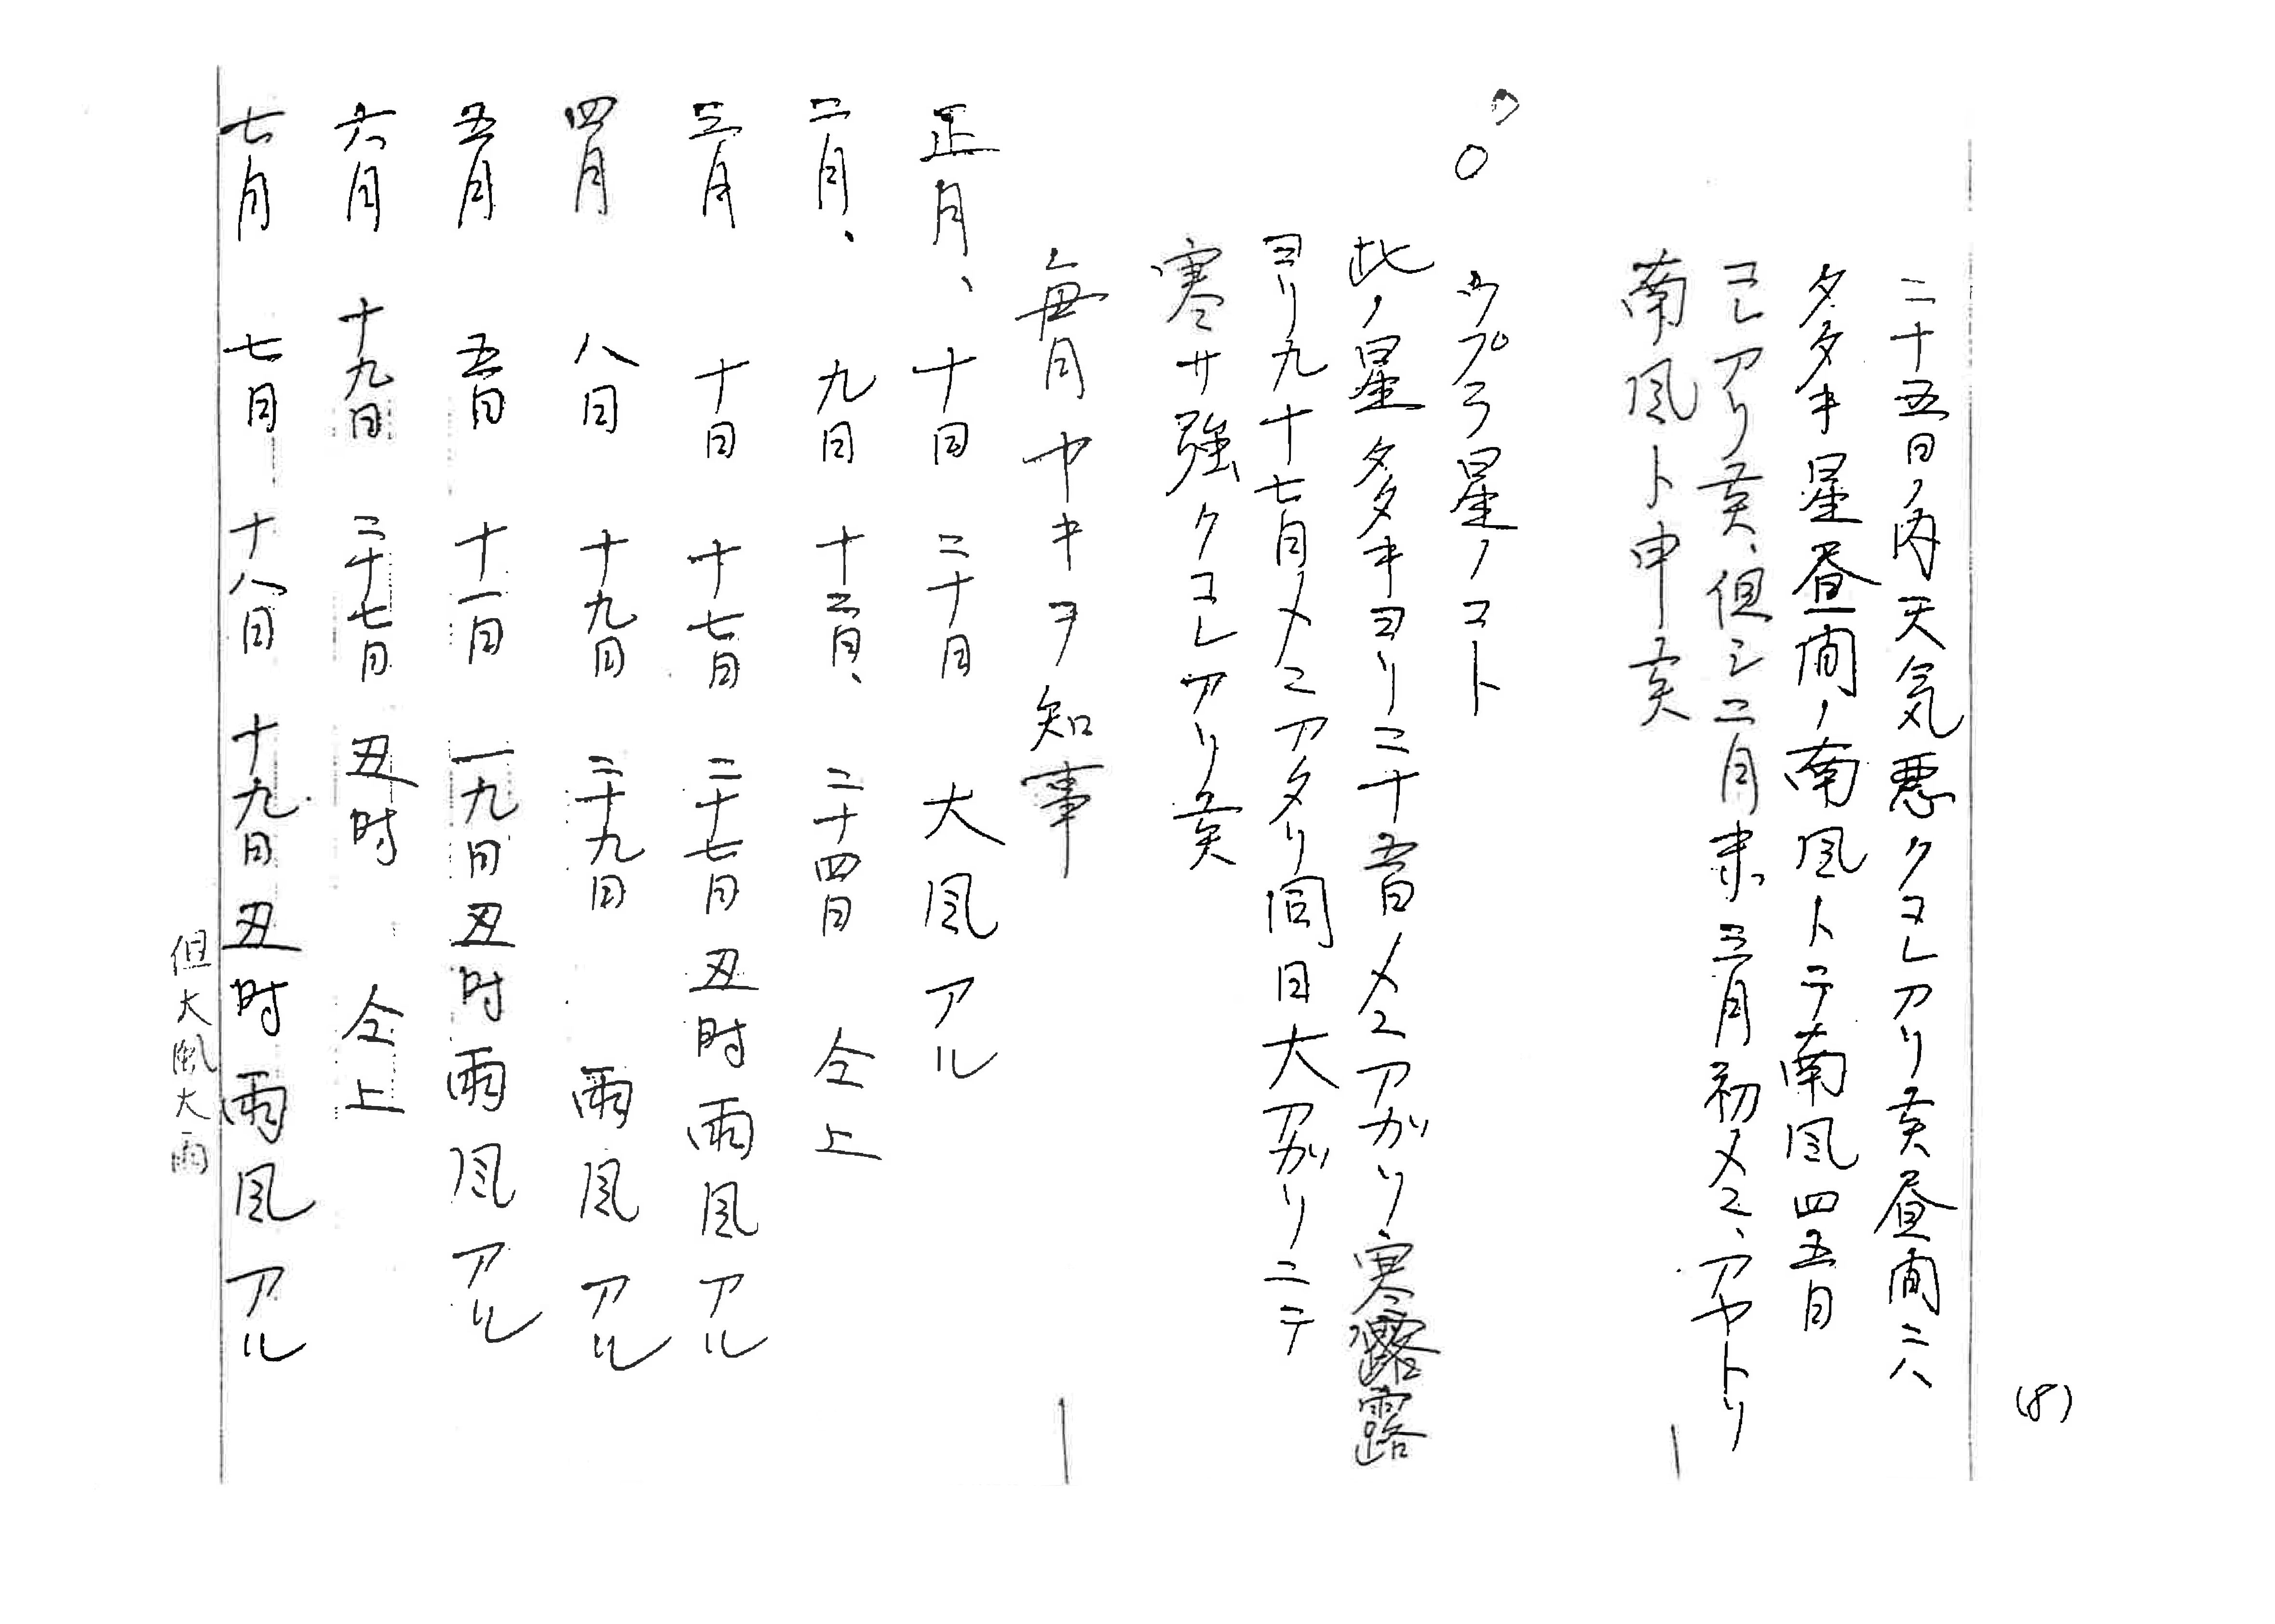 (8)
二十五日ノ内天気悪クコレアリ候昼間ニハ
タタキ星昼間ノ南風トテ南風四五日
コレアリ候、但シ二月末三月初メヱ、アヤトリ
南風ト申候
○
ウプラ星ノコト
此ノ星タタキヨリ二十五日メヱアガリ寒露
ヨリ九十七日メヱアタリ同日大アガリニテ
寒サ強クコレアリ候
毎月ヤキヲ知事
正月、十日 二十日 大風アル
二月、九日 十三日、二十四日 仝上
三月 十日 十七日 二十七日丑時雨風アル
四月 八日 十九日 二十九日 雨風アル
五月 五日 十一日 一九日丑時雨風アル
六月 十九日 二十七日 丑時 仝上
七月 七日 十八日 十九日丑時雨風アル
但大風大雨